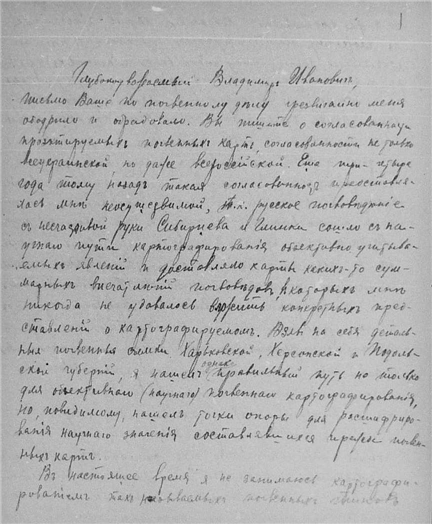 Глубокоуважаемый Владимир Иванович,
письмо Ваше по почвенному делу чрезвычайно меня
ободрило и обрадовало. Вы пишете о согласованности
проэктируемых почвенных карт, согласованности не только
всеукраинской, но даже всероссийской. Еще три-четыре
года тому назад такая согласованность представля-
лась мне неосуществимой, т.к. русское почвоведение
с несчастливой руки Сибирцева и сошло с на-
учного пути картографирования объективно учитыва-
емых явлений и доставляло картин каких-то сум-
марных впечатлений почвоведов, в которых мне
никогда не удавалось вложить конкретных пред-
ставлений о картографируемом. Взяв на себя деталь-
ныя почвенныя Харьковской, Херсонской и Подоль-
ской губерний, я нашел правильный путь не только
для объективного (научного) почвенного картографирования,
но, повидимому, нашел точки опоры для расшифриро-
вания научного значения составлявшихся прежде почве-
нных карт.
В настоящее время я не занимаюсь картографи-
рованием так называемых почвенных